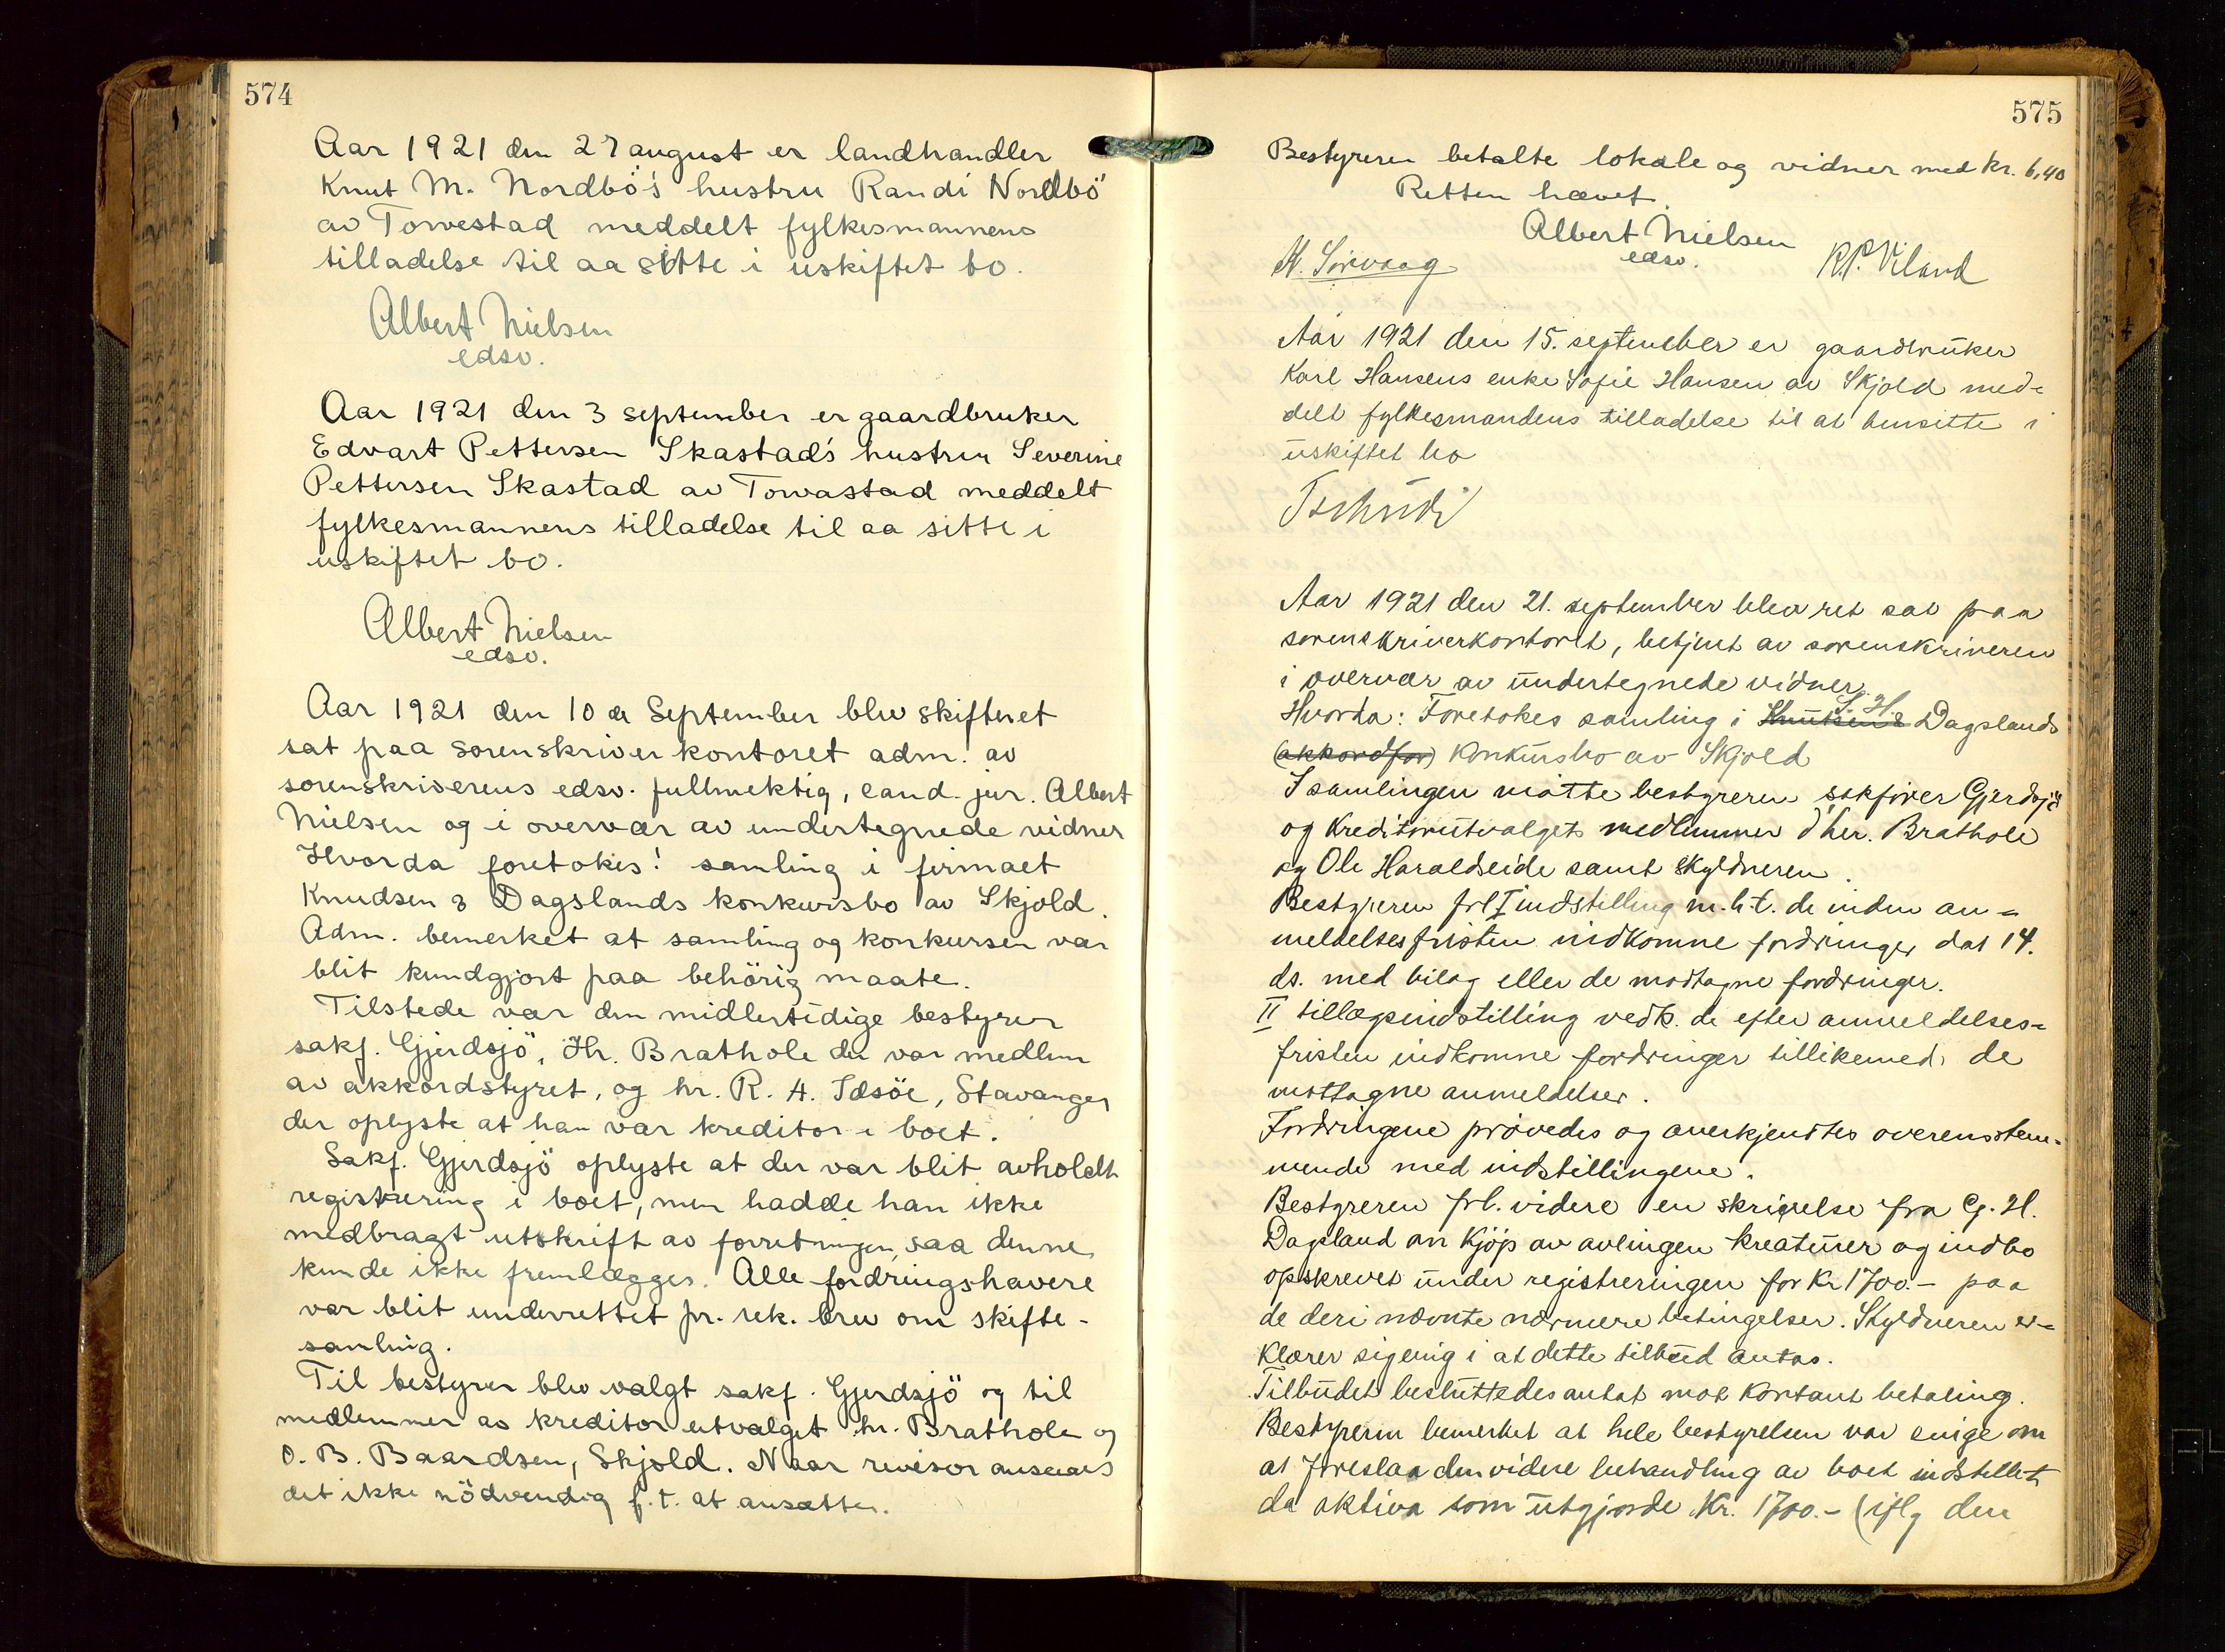 574
Aar 1921 den 27 august er landhandler
Knut M. Nordbö's hustru Randi Nordbö
av Torvestad meddelt fylkesmannens
tilladelse til aa sitte i uskiftet bo.
Albert Nielsen
edsv.
Aar 1921 den 3 september er gaardbruker
Edvart Pettersen Skastad's hustru Severine
Pettersen Skastad av Torvastad meddelt
fylkesmannens tilladelse til aa sitte i
uskiftet bo.
Albert Nielsen
edsv.
Aar 1921 den 10 de September blev skifteret
sat paa sorenskriverkontoret adm. av
sorenskriverens edsv. fullmektig, cand. jur. Albert
Nielsen og i overvær av undertegnede vidner
Hvorda foretokes: samling i firmaet
Knudsen & Dagslands konkursbo av Skjold.
Adm. bemerket at samling og konkursen var
blit kundgjort paa behörig maate.
Tilstede var den midlertidige bestyrer
sakf. Gjerdsjö, Hr. Brathole der var medlem
av akkordstyret, og hr. R. A. Idsöe, Stavanger
der oplyste at han var kreditor i boet.
Sakf. Gjerdsjö oplyste at der var blit avholdt
registrering i boet, men hadde han ikke
medbragt utskrift av forretningen, saa denne
kunde ikke fremlægges. Alle fordringshavere
var blit underrettet pr. rek. brev om skifte-
samling.
Til bestyrer blev valgt sakf. Gjerdsjö og til
medlemmer av kreditorutvalget hr. Brathole og
O. B. Baardsen, Skjold. Noar revisor ansaaes
det ikke nödvendig f. t. at ansætte.
575
Bestyreren betalte lokale og vidner med kr. 6,40
Retten hævet.
Albert Nielsen
edsv.
K. Sörvaag
R. P. Viland
Aar 1921 den 15. september er gaardbruker
Karl Hansens enke Sofie Hansen av Skjold med-
delt fylkesmandens tilladelse til at hensitte i
uskiftet bo
Tschudi
Aar 1921 den 21. september blev ret sat paa
sorenskriverkontoret, betjent av sorenskriveren
i overvær av undertegnede vidner.
Hvorda: Foretokes samling i Knutsen & G. H. Dagslands
(akkordfor) konkursbo av Skjold
I samlingen møtte bestyreren sakfører Gjerdsjö
og Kreditorutvalgets medlemmer d'her. Brathole
og Ole Haraldseide samt skyldneren.
Bestyreren frl. I indstilling m.h.t. de inden an-
meldelsesfristen indkomne fordringer dat 14.
ds. med bilag eller de mottagne fordringer.
II tillægsindstilling vedk. de efter anmeldelses-
fristen indkomne fordringer tillikemed de
mottagne anmeldelser.
Fordringene prøvedes og anerkjendtes overensstem-
mende med indstillingene.
Bestyreren frl. videre en skrivelse fra G. H.
Dagsland om Kjøp av avlingen kreaturer og indbo
opskrevet under registreringen for Kr 1700.- paa
de deri nævnte nærmere betingelser. Skyldneren er-
klærer sig enig i at dette tilbud antas.
Tilbudet besluttedes antat mot kontant betaling.
Bestyreren bemerket at hele bestyrelsen var enige om
at foreslaa den videre behandling av boet indstillet
da aktiva som utgjorde Kr. 1700.- (iflg den